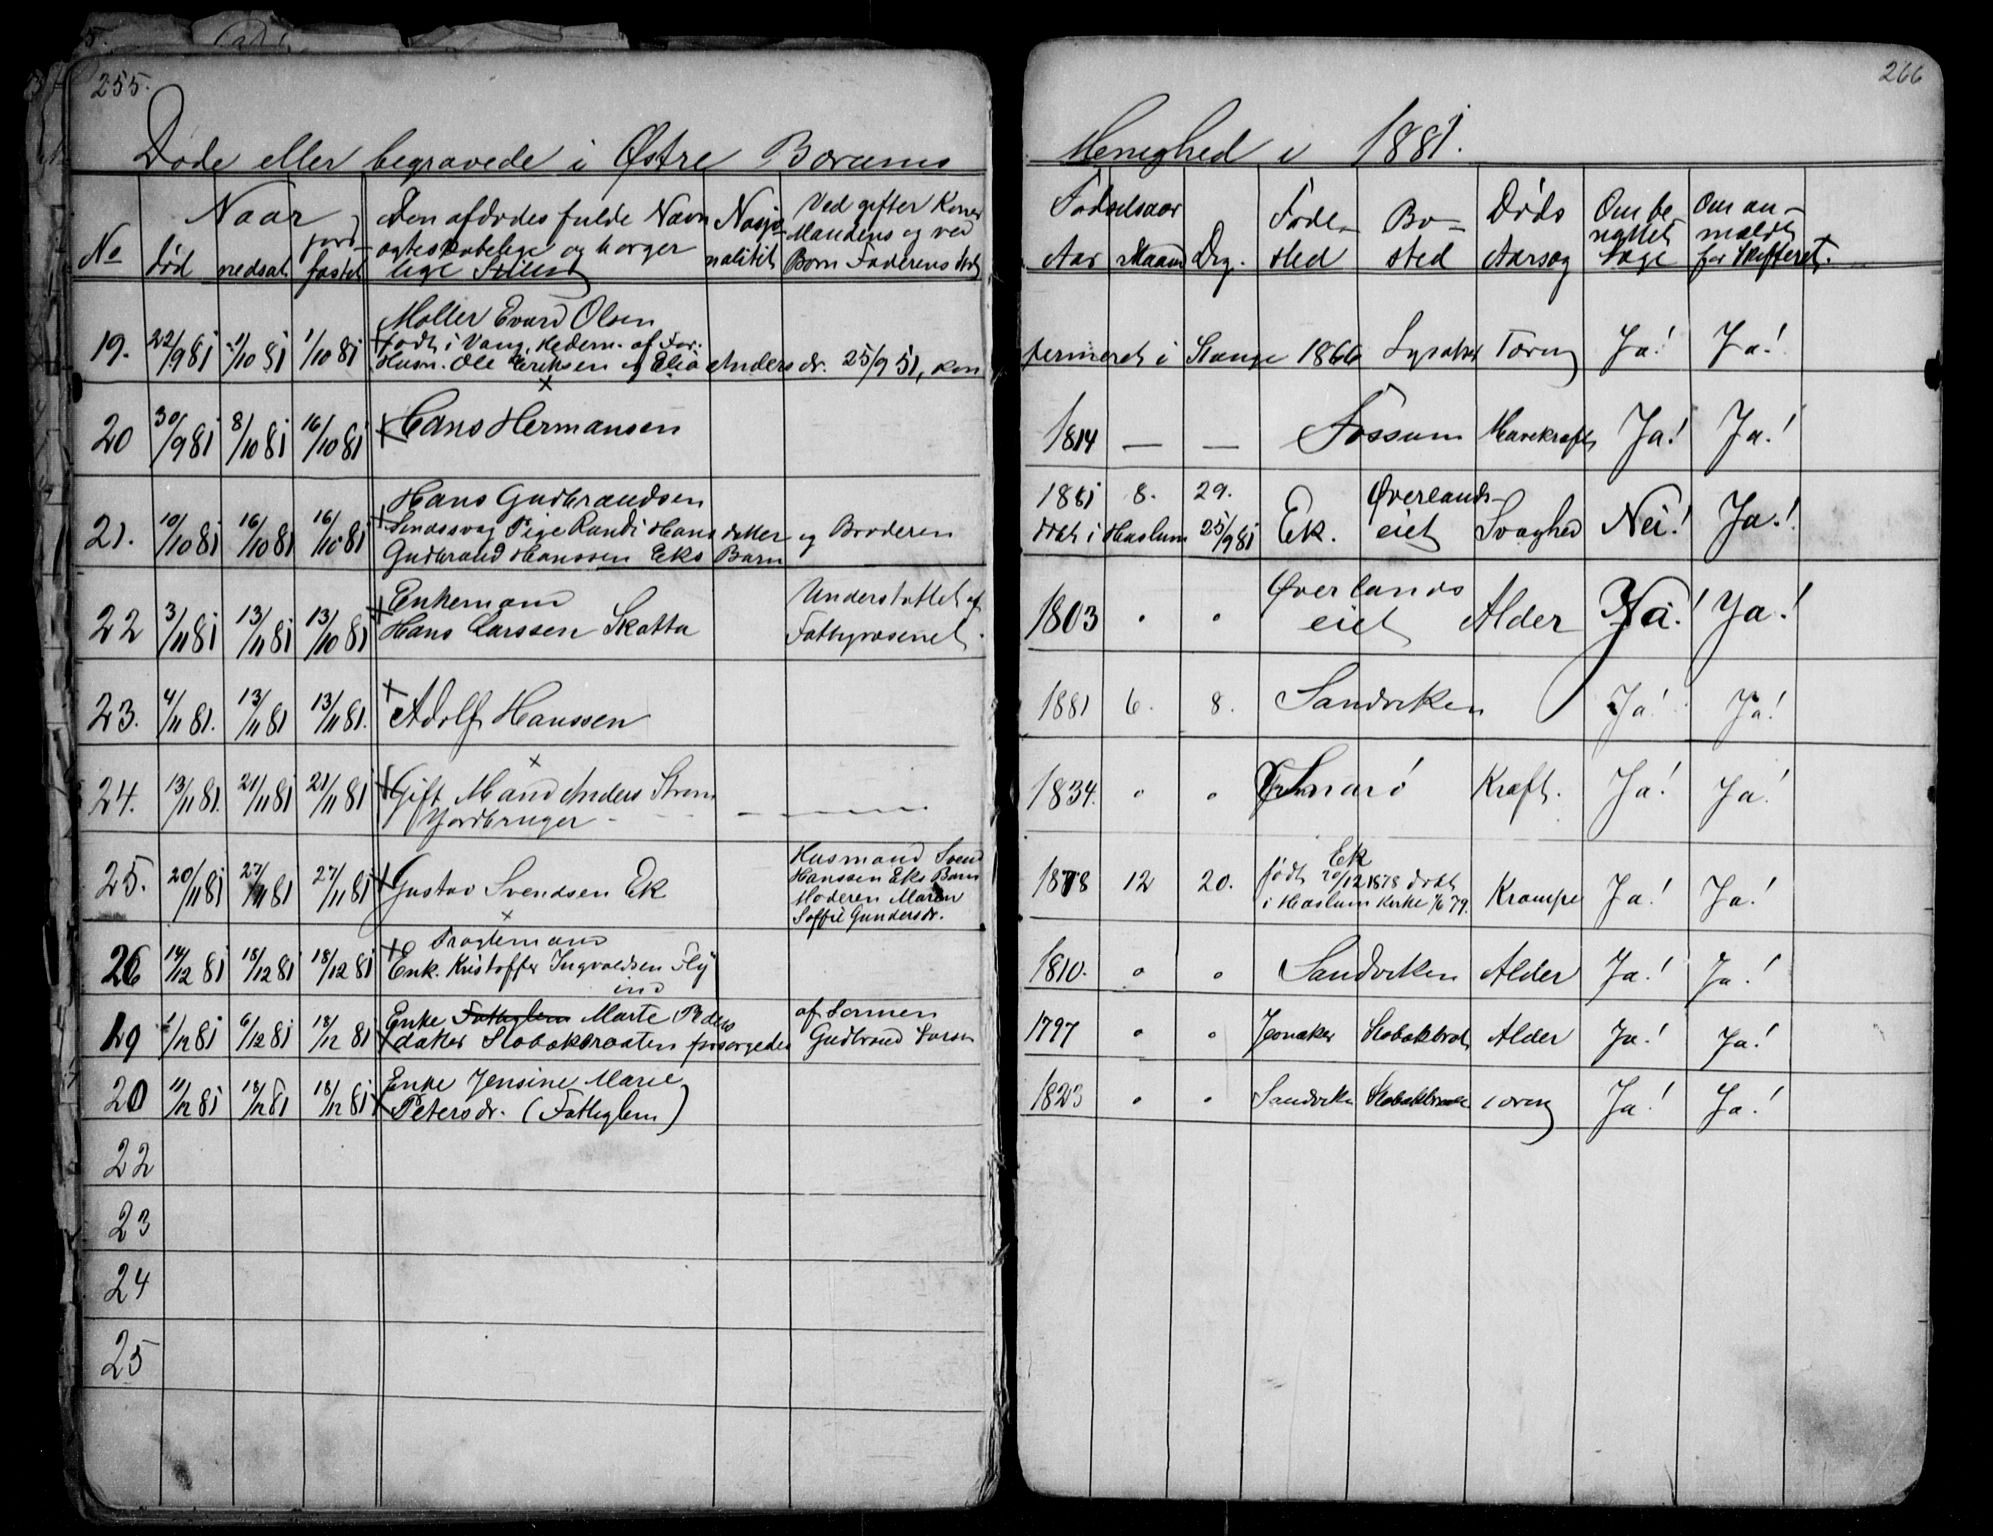 255.
Døde eller begravede i Østre Bærums
No
Naar
død
nedsat
jord-
fæstet
Den afdødes fulde Navn
ægteskabelige og borger
lige
Nasjo-
nalitet
Ved gifter Koner
Mandens og ved
Børn Faderens
19. 22/9 81 1/10 81 1/10 81
Møller Evard Olsen
født i Vang, Hedem. af For:
Husm. Ole Eriksen og Elia Anders dr. 25/9 51, kon
20 30/9 81 8/10 81 16/10 81 Hans Hermansen
21. 10/10 81 16/10 81 16/10 81
Hans Gudbrandsen
Sindssvag Pige Randi Hans datter og Broderen
Gudbrand Hanssen Eks Barn
22 3/11 81 13/11 81 13/10 81
Enkemand
Hans Larssen Skatta
Understøttet af
Fattigvæsenet.
23. 4/11 81. 13/11 81 13/11 81. Adolf Hanssen
24. 13/11 81. 21/11 81 21/11 81
Gift Mand Anders Strøm
Jordbruger -
25. 20/11 81 27/11 81 27/11 81 Gustav Svendsen Ek
Husmand Svend
Hanssen Eks Barn
Moderen Maren
Soffie Gundersdr.
26 14/12 81 18/12 81 18/12 81
Enk. Kristoffer Ingvaldsen Fly
19 1/12 81 6/12 81 18/12 81
Enke Fattiglem Marte Peders
datter Slobakbraaten forsørgedes
af Sønnen
Gudbrand
20 11/12 81 18/12 81 18/12 81
Enke Jensine Marie
Petersdr. (Fattiglem)
22
23
24
25
266
Menighed i 1881.
Fødselsaar
Aar
Maaned
Dag.
Føde-
sted
Bo-
sted
Døds
Aarsag
Om be-
nyttet
Læge
Om an-
mældt
for Skifteret.
firmeret i Stange 1866 Lysaker Tæring Ja! Ja!
1814 — — Fossum Mavekræft Ja! Ja!
1881 8. 29.
døbt i Haslum 25/9 81 Ek.
Øverlands-
eiet
Svaghed Nei! Ja!
1803 " "
Øverlands
eiet
Alder Ja! Ja!
1881 6. 8. Sandviken Ja! Ja!
1834. " " Kræft. Ja! Ja!
1878 12 20.
Ek
født 20/12 1878 døbt
i Haslum Kirke 1/6 79.
Krampe Ja! Ja!
1810. " " Sandviken Alder Ja! Ja!
1797 " " Jevnaker Slobakbrat Alder Ja! Ja!
1823 " " Sandviken Tæring Ja! Ja!